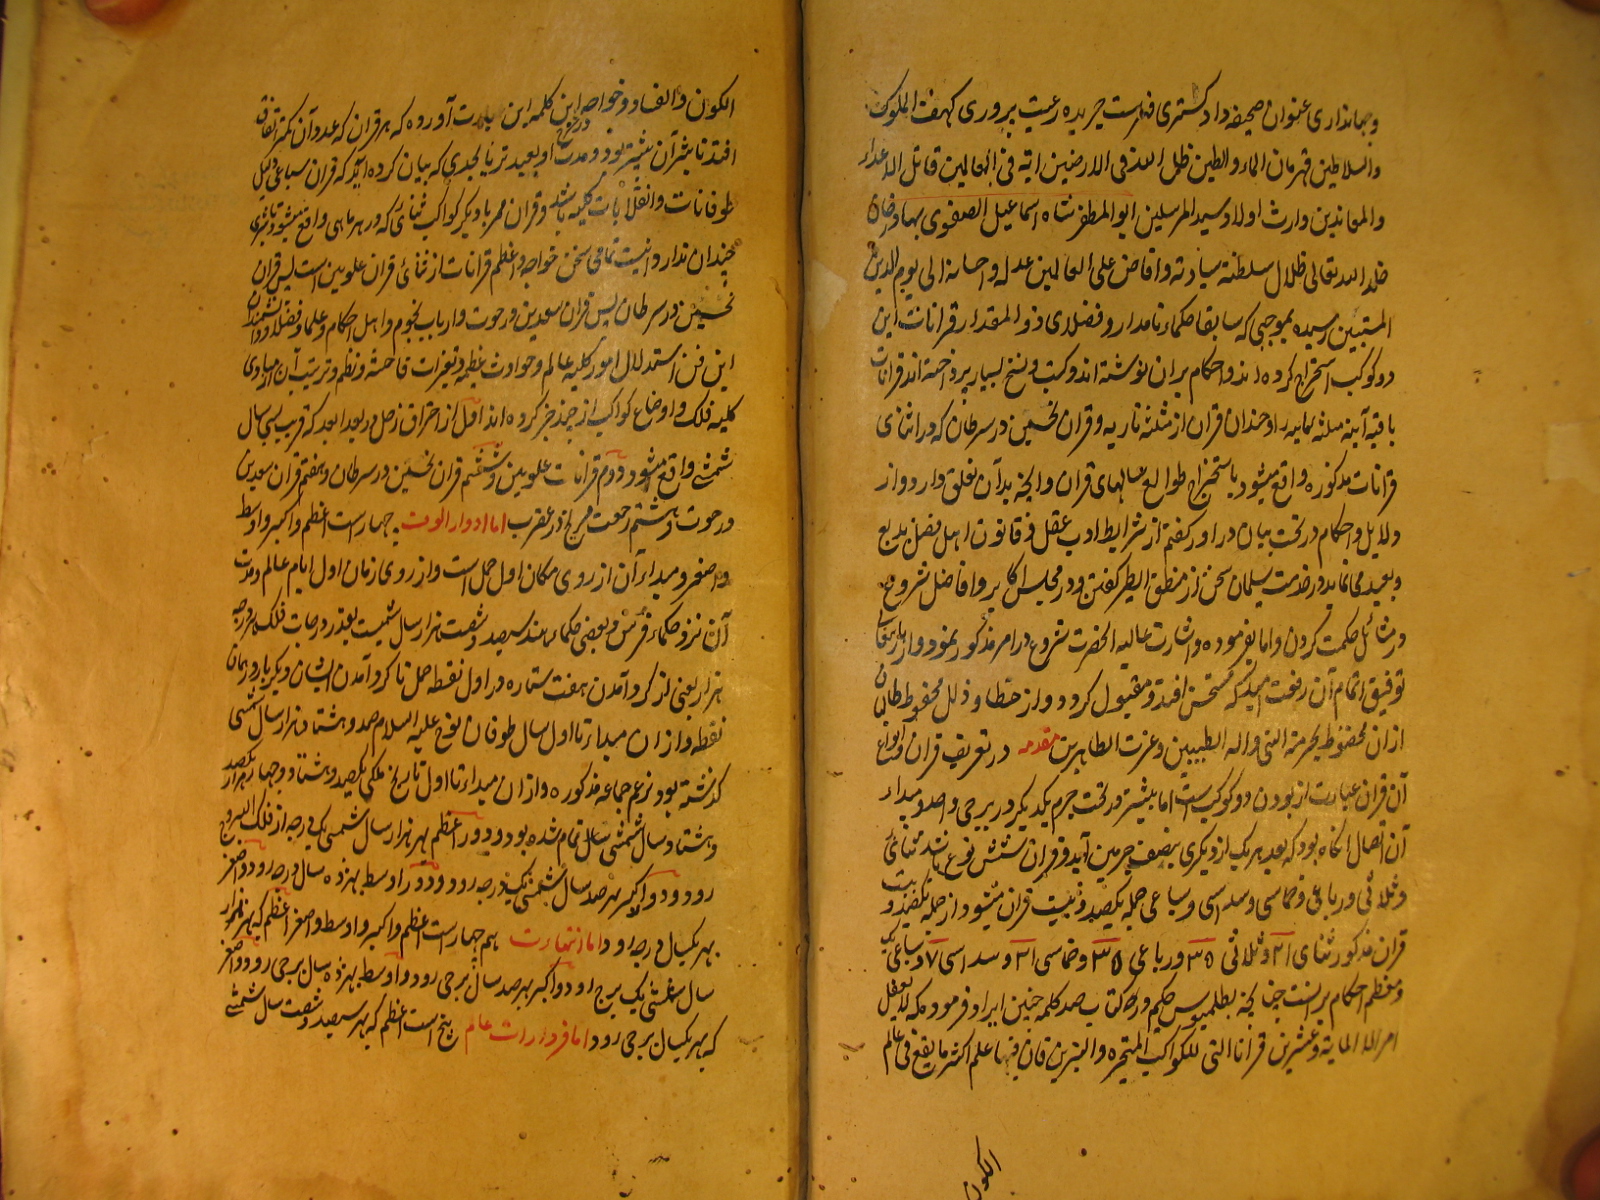 وجهانداری عنوان صحیفه دادگستری فهرست جریده رعیت پروری کهف الملوک
والسلاطین قهرمان الماء والطین ظل الله فی الارضین آیة فی العالمین قاتل الاعداء
والمعاندین وارث اولاد سید المرسلین ابوالمظفر شاه اسماعیل الصفوی بهادرخان
خلد الله تعالی ظلال سلطنته سیادته وافاض علی العالمین عدله واحسانه الی یوم الدین
رسیده بموجبی که سابقا حکماء نامدار وفضلای ذوالمقدار قرانات این
دو کوکب استخراج کرده اند واحکام بران نوشته اند وکتب ونسخ بسیار پرداخته اند قرانات
باقیه آتیه مثلثه وقران نحسین در سرطان که در اثنای
قرانات مذکوره واقع میشود باستخراج طوالع سالهای قران وآنچه بدان تعلق دارد واز
دلایل واحکام در تحت بیان در اورد گفتم از شرایط ادب عقل وقانون اهل فضل بدیع
وبعید مینماید در خدمت سلیمان سخن از منطق الطیر گفتن ودر مجلس اکابر وافاضل شروع
در مسائل حکمت کردن واما بفرموده واشارت عالیه الحضرت شروع در امر مذکور نمود واز باریتعالی
توفیق اتمام آن رفت امید که مستحسن افتد ومقبول گردد واز خطا وذلل محفوظ
ازان محفوظ بحرمة النبی واله الطیبین وعترت الطاهرین مقدمه در تعریف قران وانواع
آن قران عبارت از بودن دو کوکب است اما بیشتر در تحت جرم یکدیگر در برجی واحد ومبداء
آن اتصال انگاه بود که بعد هر یک از دیگری بنصف جرمین آید وقران شش نوع باشد ثنائی
وثلاثی ورباعی وخماسی وسداسی وسباعی جمله یکصد وبیست قران میشود از جمله یکصد وبیست
قران مذکور ثنای ۲۱ وثلاثی ۳۵ ورباعی ۳۵ وخماسی ۲۱ وسداسی ۷ وسباعی یک
ومعظم احکام برانست چنانچه بطلمیوس حکیم در کتاب صد کلمه چنین ایراد فرموده که لا تغفل
امر المایة وعشرین قرانا التی للکواکب المتحیره والنیرین فان فیها علم اکثر ما یقع فی عالم
الکون
الکون والفساد وخواجه این کلمه را باین عبارت آورده که هر قران که عدد آن کمتر اتفاق
افتد تاثیر آن بیشتر بود ومدت او بعیدتر تا بحدی که بیان کرده اند که قران سباعی دلیل
طوفانات وانقلابات کلیه باشد وقران قمر با دیگر کواکب ثنائی که در هر ماهی واقع میشود تاثیری
چندان ندارد اینست تمامی سخن خواجه واعظم قرانات از ثنائی قران علویین است پس قران
نحسین در سرطان پس قران سعدین در حوت وارباب نجوم واهل احکام وعلما وفضلا ودانشمندان
این فن استدلال امور کلیه عالم وحوادث عظیمه وتغیرات فاحشه ونظم وترتیب آن از مبادی
کلیه فلک واوضاع کواکب از چند چیز کرده اند اول از احتراق زحل در بعد ابعد که قریب بسی سال
شمسی واقع میشود دوم قرانات علویین وششم قران نحسین در سرطان وهفتم قران سعدین
در حوت وهشتم رجعت مریخ در عقرب اما ادوار الوف چهار است اعظم واکبر واوسط
واصغر ومبداء آن از روی مکان اول حمل است واز روی زمان اول ایام عالم ومدت
آن نزد حکماء فرس وبعضی حکماء هند سیصد وشصت هزار سال شمسیست بعدد درجات فلک هر درجه
هزار یعنی از گرد آمدن هفت ستاره در اول نقطه حمل تا گرد آمدن ایشان دیگر بار در همان
نقطه وازان مبداء تا اول سال طوفان نوح علیه السلام صد وهشتاد هزار سال شمسی
گذشته بود بزعم جماعه مذکوره وازان مبداء تا اول تاریخ ملکی یکصد وهشتاد وچهار هزار یکصد
وهشتاد سال شمسی تمام شده بود ودور اعظم بهر هزار سال شمسی یک درجه از فلک البروج
رود ودور اکبر بهر صد سال شمسی یک درجه رود ودور اوسط بهر ده سال درجه رود واصغر
بهر یکسال درجه رود اما انتهاءات هم چهار است اعظم واکبر واوسط واصغر اعظم که بهر هزار
سال شمسی یک برج رود واکبر بهر صد سال برجی رود واوسط بهر ده سال برجی رود واصغر
که بهر یکسال برجی رود اما فردارات عالم پنج است اعظم که بهر سیصد وشصت سال شمسی